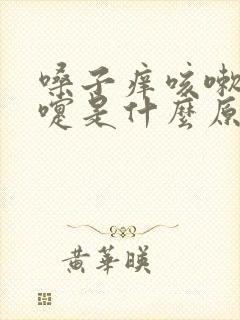 嗓子痒咳嗽
嚏是什麼原
黄華暎